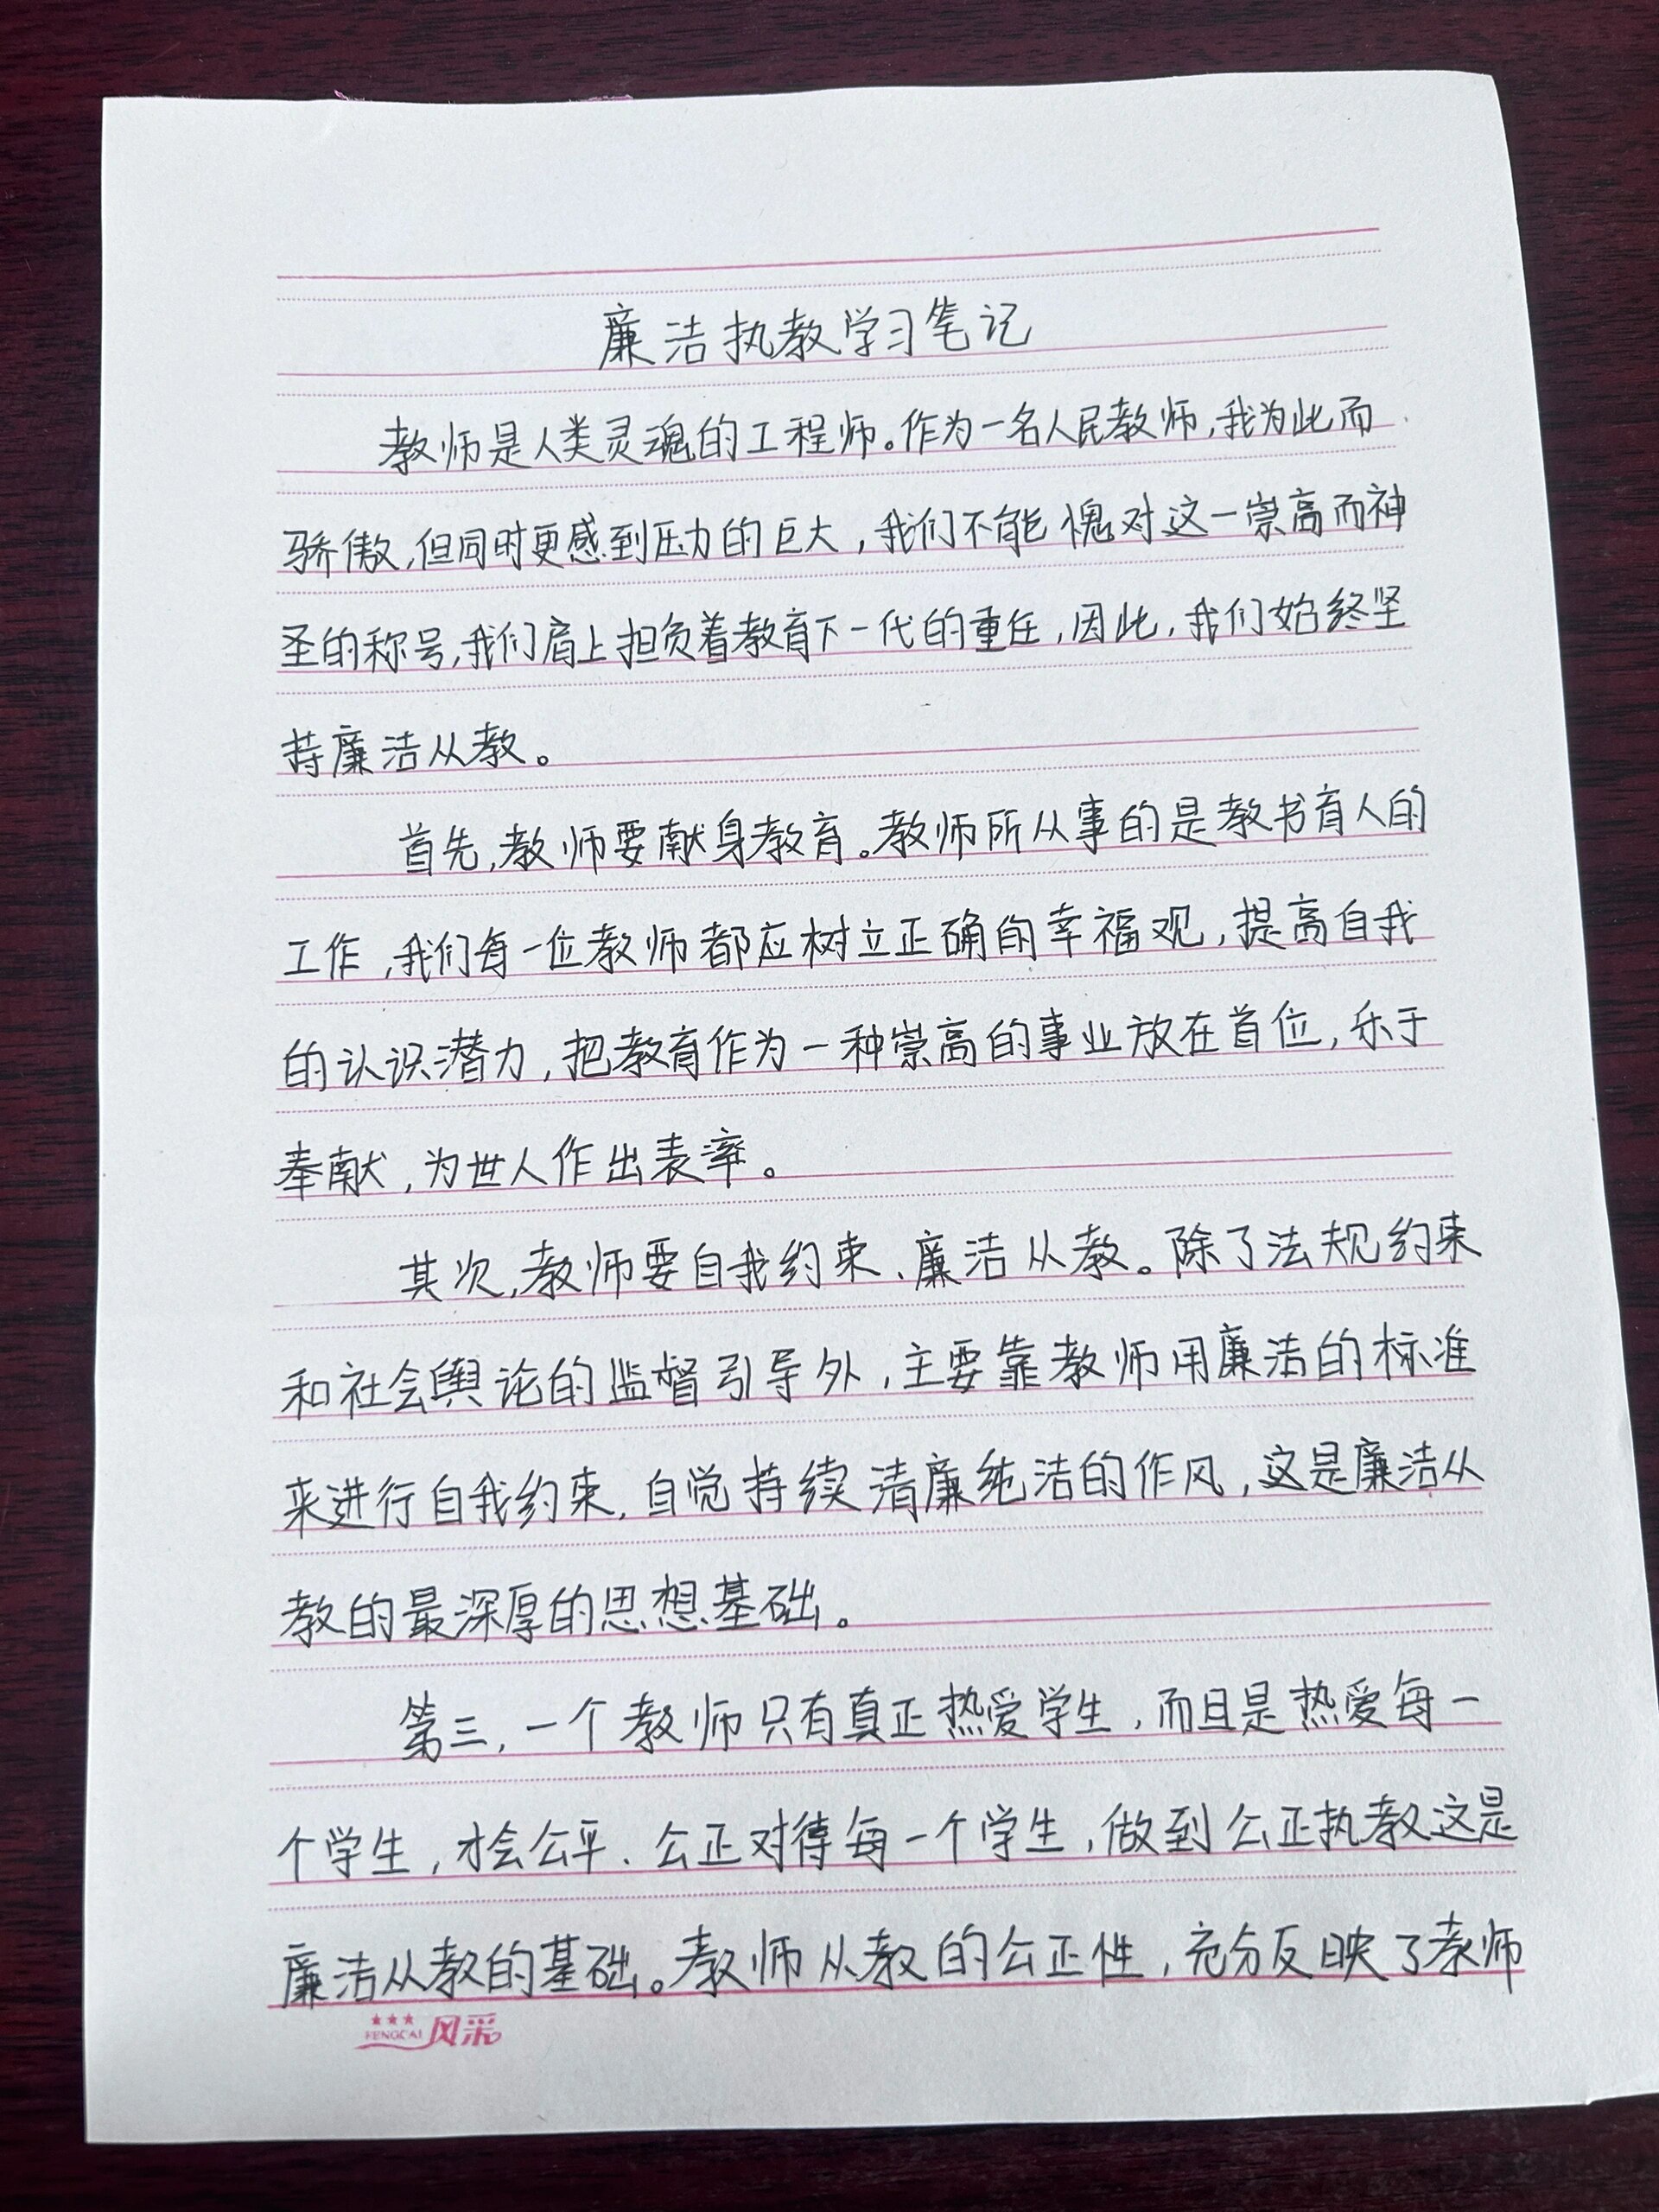 廉洁执教学习笔记
教师是人类灵魂的工程师。作为一名人民教师,我为此而
骄傲,但同时更感到压力的巨大,我们不能愧对这一崇高而神
圣的称号,我们肩上担负着教育下一代的重任,因此,我们始终坚
持廉洁从教。
首先,教师要献身教育。教师所从事的是教书育人的
工作,我们每一位教师都应树立正确的幸福观,提高自我
的认识潜力,把教育作为一种崇高的事业放在首位,乐于
奉献,为世人作出表率。
其次,教师要自我约束、廉洁从教。除了法规约束
和社会舆论的监督引导外,主要靠教师用廉洁的标准
来进行自我约束,自觉持续清廉纯洁的作风,这是廉洁从
教的最深厚的思想基础。
第三,一个教师只有真正热爱学生,而且是热爱每一
个学生,才会公平、公正对待每一个学生,做到公正执教这是
廉洁从教的基础。教师从教的公正性,充分反映了教师
FENGCAI 风采